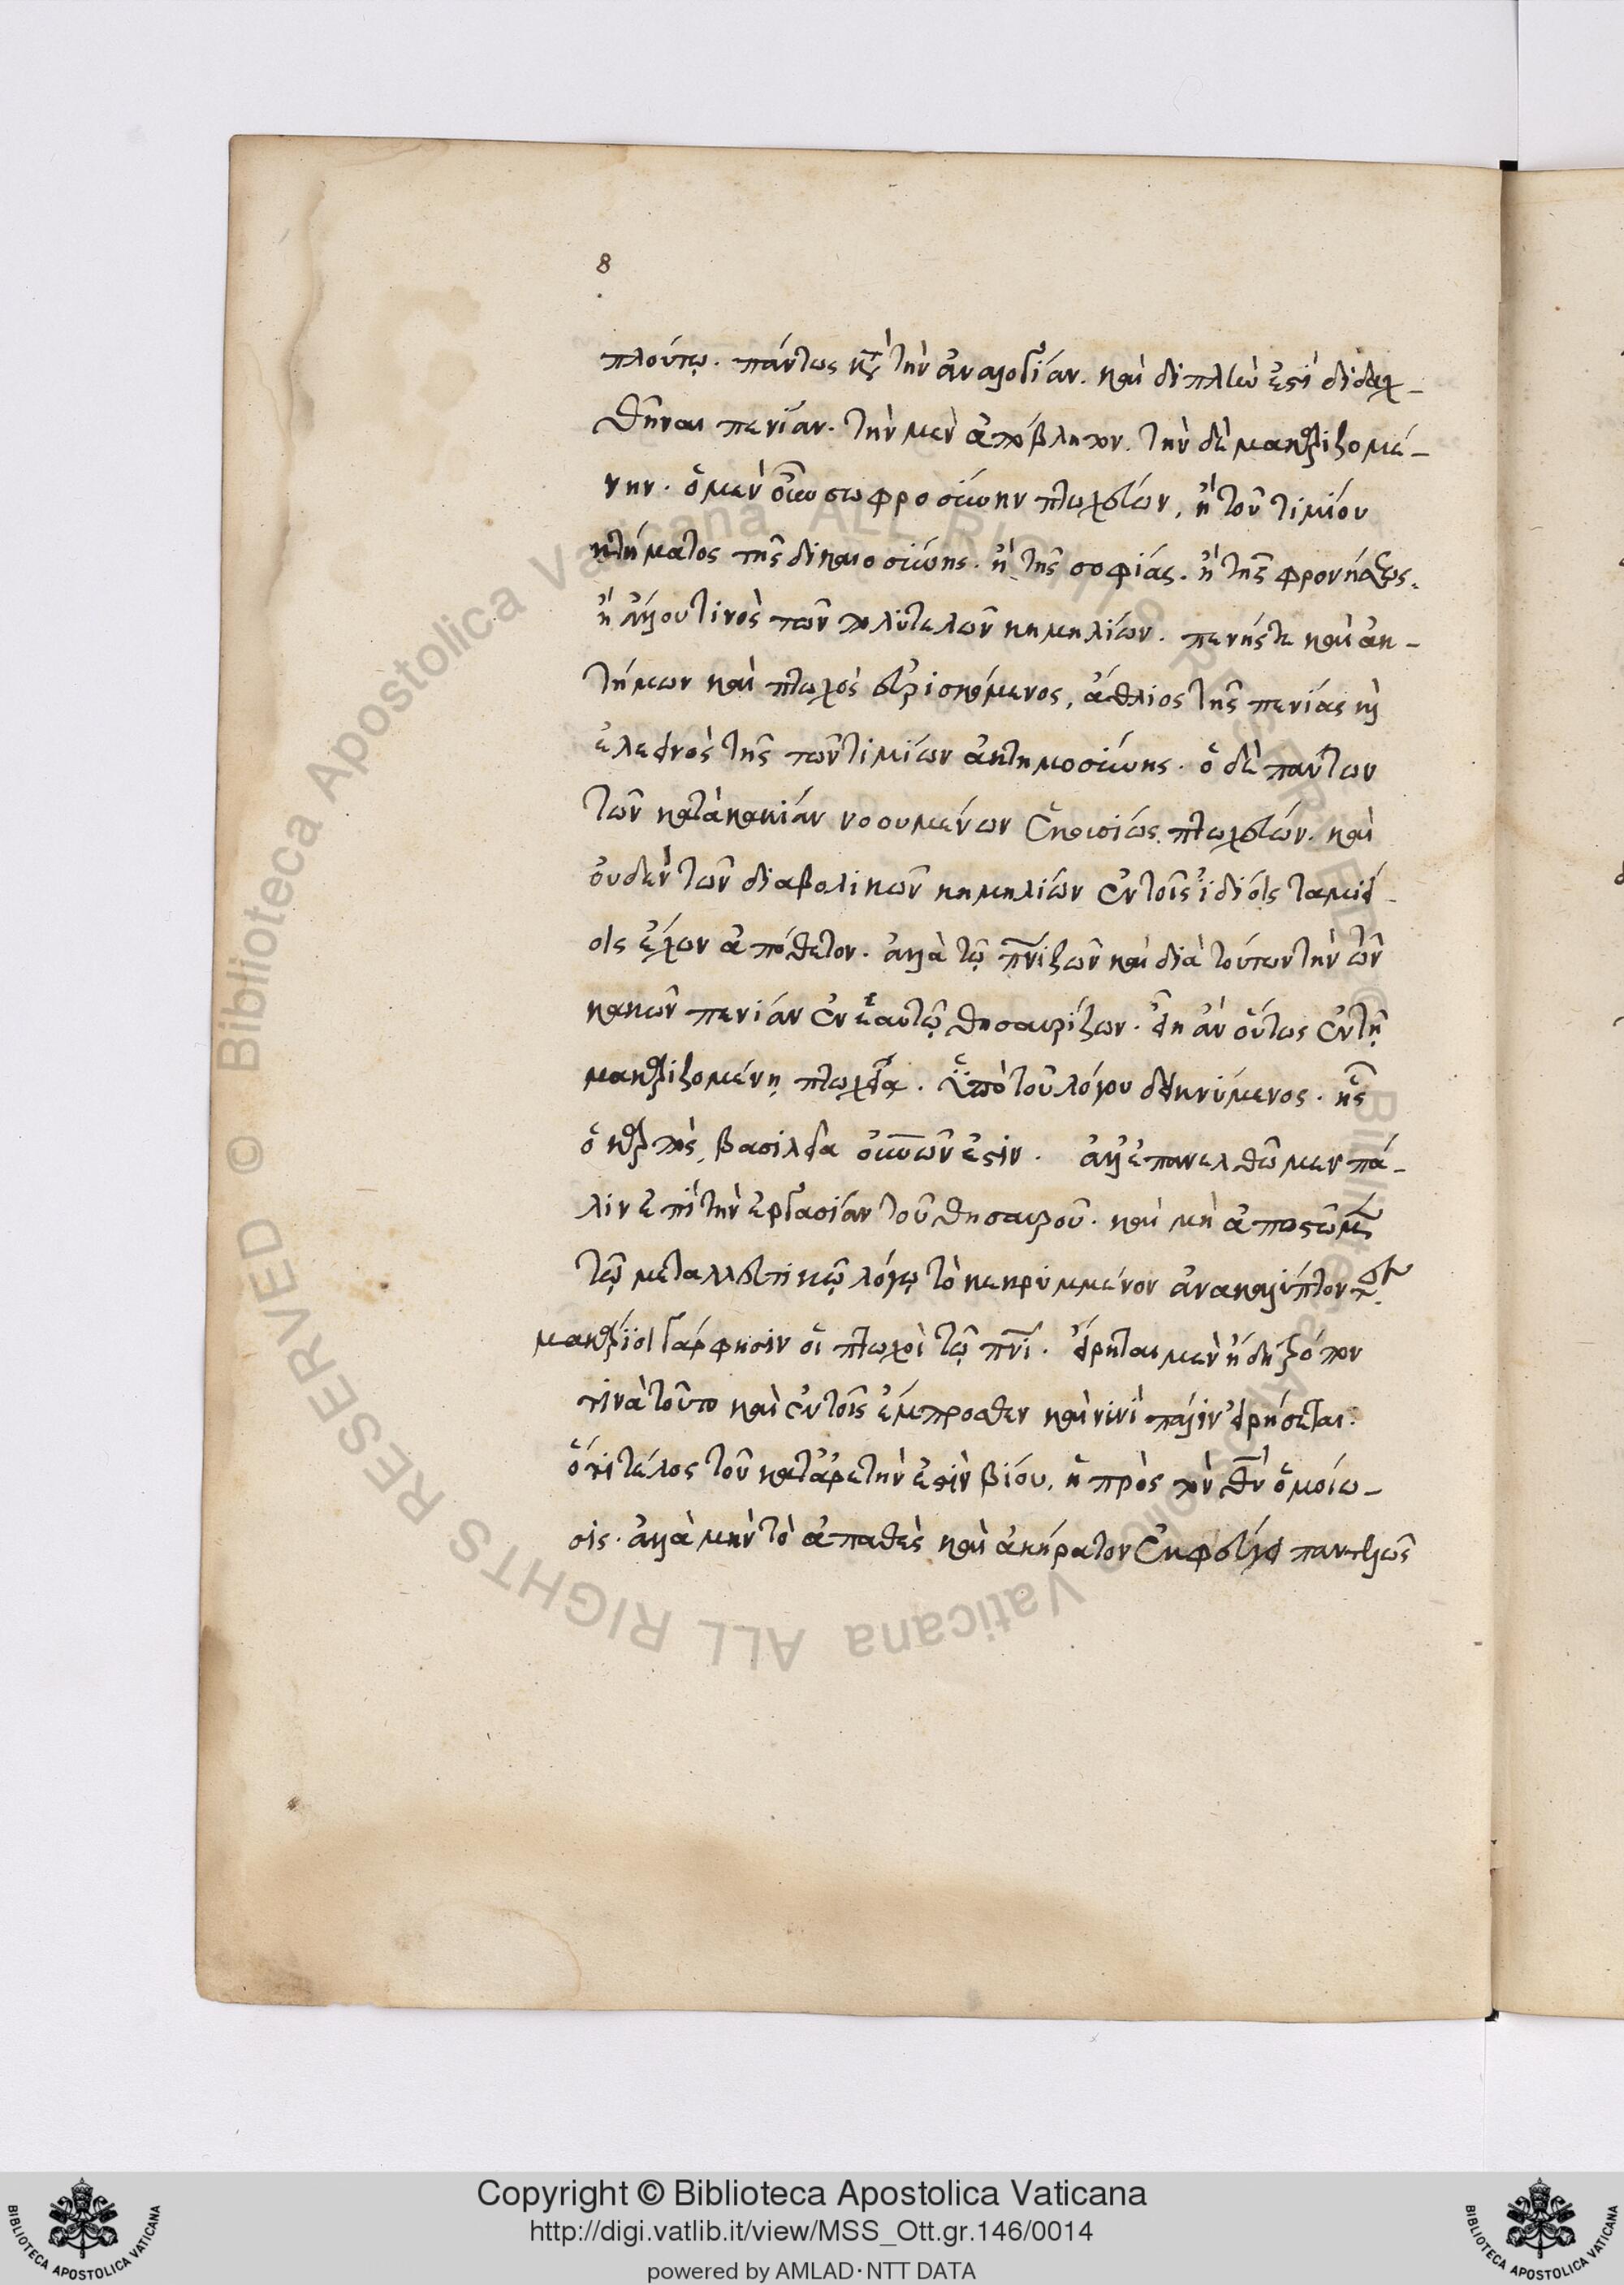 8
πλούτῳ. πάντως κατὰ τὴν ἀναλογίαν. καὶ διπλὴν ἐστὶ διδαχ-
θῆναι πενίαν. τὴν μὲν ἀπόβλητον. τὴν δὲ μακαριζομέ-
νην. ὁ μὲν οὖν σωφροσύνην πτωχεύων, ἢ τοῦ τιμίου
κτήματος τῆς δικαιοσύνης. ἢ τῆς σοφίας. ἢ τῆς φρονήσεως.
ἢ ἄλλου τινὸς τῶν πολυτελῶν κημηλίων. πένης τε καὶ ἀκ-
τήμων καὶ πτωχὸς εὑρισκόμενος, ἄθλιος τῆς πενίας καὶ
ἐλεεινὸς τῆς τῶν τιμίων ἀκτημοσύνης. ὁ δὲ πάντων
τῶν κατὰ κακίαν νοουμένων ἑκουσίως πτωχεύων. καὶ
οὐδὲν τῶν διαβολικῶν κημηλίων ἐν τοῖς ἰδίοις ταμεί-
οις ἔχων ἀπόθετον. ἀλλὰ τῷ πνι ζῶν καὶ διὰ τούτων τὴν τῶν
κακῶν πενίαν ἐν ἑαυτῷ θησαυρίζων. εἴη ἂν οὗτος ἐν τῇ
μακαριζομένῃ πτωχείᾳ. ὑπὸ τοῦ λόγου δεικνύμενος. ἧς
ὁ καρπὸς, βασιλεία οὐνῶν ἐστιν. ἀλλ' ἐπανέλθωμεν πά-
λιν ἐπὶ τὴν ἐργασίαν τοῦ θησαυροῦ. καὶ μὴ ἀποστῶμεν
τῷ μεταλλευτικῷ λόγῳ τὸ κεκρυμμένον ἀνακαλύπτοντες.
μακάριοι γάρ φησιν οἱ πτωχοὶ τῷ πνι. εἴρηται μὲν ἤδη τρόπον
τινὰ τοῦτο καὶ ἐν τοῖς ἔμπροσθεν καὶ νυνὶ πάλιν εἰρήσεται.
ὅτι τέλος τοῦ κατ' ἀρετὴν ἐστὶν βίου, ἡ πρὸς τὸν θν ὁμοίω-
σις. ἀλλὰ μὴν τὸ ἀπαθὲς καὶ ἀκήρατον ἐκφεύγει παντελῶς
Copyright © Biblioteca Apostolica Vaticana
http://digi.vatlib.it/view/MSS_Ott.gr.146/0014
powered by AMLAD·NTT DATA
BIBLIOTECA APOSTOLICA VATICANA
BIBLIOTECA APOSTOLICA VATICANA
© Biblioteca Apostolica Vaticana ALL RIGHTS RESERVED
© Biblioteca Apostolica Vaticana ALL RIGHTS RESERVED